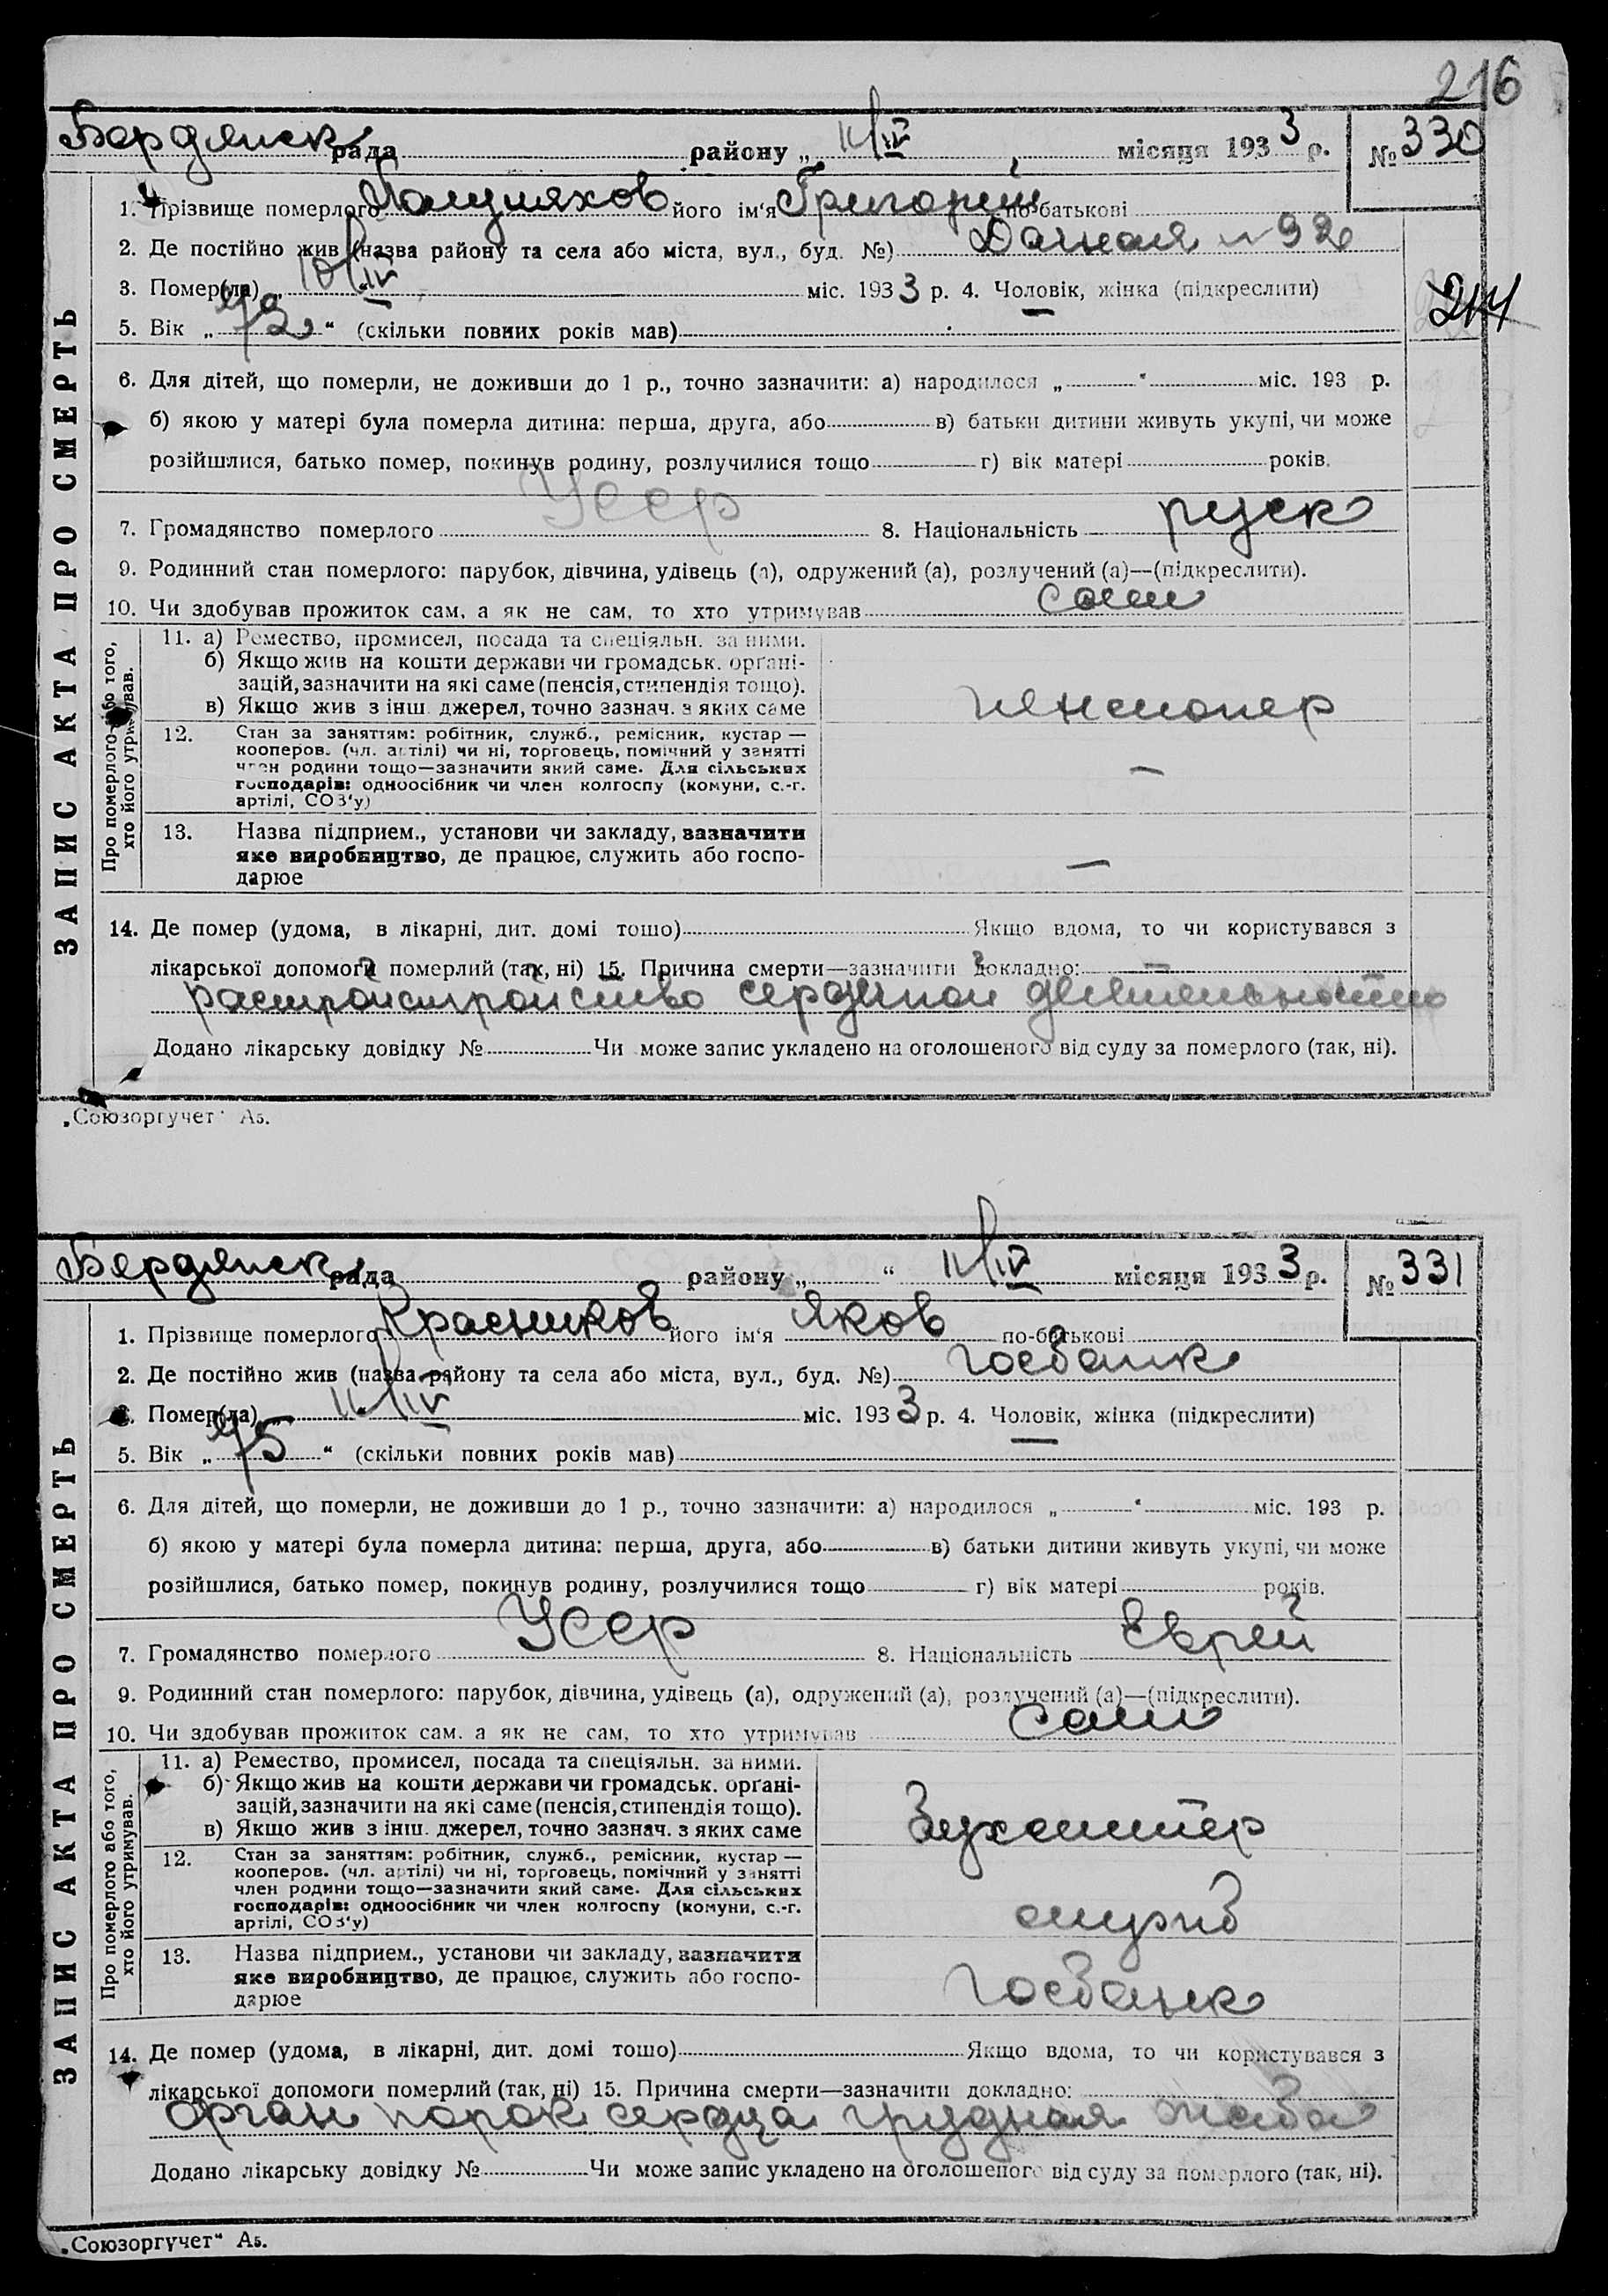 216
Бердянск рада районy „ 11/IV місяця 1933 р. № 330
1. Прізвище померлого його ім‘я Григорий по-батькові
2. Де постійно жив (назва району та села або міста, вул., буд. №) Дачная № 92
3. Помер(ла) „ 10/IV “ міс. 1933 р. 4. Чоловік, жінка (підкреслити)
5. Вік „ 72 “ (скільки повних років мав)
214
ЗАПИС АКТА ПРО СМЕРТЬ
6. Для дітей, що померли, не доживши до 1 р., точно зазначити: а) народилося „ “ міс. 193 р.
б) якою у матері була померла дитина: перша, друга, або в) батьки дитини живуть укупі, чи може
розійшлися, батько помер, покинув родину, розлучилися тощо г) вік матері років.
7. Громадянство померлого Усср 8. Національність руск
9. Родинний стан померлого: парубок, дівчина, удівець (а), одружений (а), розлучений (а)—(підкреслити).
10. Чи здобував прожиток сам, а як не сам, то хто утримував сам
Про померлого або того, хто його утримував.
11. а) Ремество, промисел, посада та спеціяльн. за ними.
б) Якщо жив на кошти держави чи громадськ. орґані-
зацій, зазначити на які саме (пенсія, стипендія тощо).
в) Якщо жив з інш. джерел, точно зазнач. з яких саме пенсионер
12. Стан за заняттям: робітник, служб., ремісник, кустар —
кооперов. (чл. артілі) чи ні, торговець, помічний у занятті
член родини тощо—зазначити який саме. Для сільських
господарів: одноосібник чи член колгоспу (комуни, с.-г.
артілі, СОЗ‘у) —
13. Назва підприєм., установи чи закладу, зазначити
яке виробництво, де працює, служить або госпо-
дарює —
14. Де помер (удома, в лікарні, дит. домі тощо) Якщо вдома, то чи користувався з
лікарської допомоги померлий (так, ні) 15. Причина смерти—зазначити докладно: —
сердечной деятельности
Додано лікарську довідку № Чи може запис укладено на оголошеного від суду за померлого (так, ні).
„Союзоргучет“ А5.
Бердянск рада району „ “ 11/IV місяця 1933 р. № 331
1. Прізвище померлого Красников його ім‘я Яков по-батькові
2. Де постійно жив (назва району та села або міста, вул., буд. №) Госбанк
3. Помер(ла) 11/IV міс. 1933 р. 4. Чоловік, жінка (підкреслити)
5. Вік „ 45 “ (скільки повних років мав)
ЗАПИС АКТА ПРО СМЕРТЬ
6. Для дітей, що померли, не доживши до 1 р., точно зазначити: а) народилося „ “ міс. 193 р.
б) якою у матері була померла дитина: перша, друга, або в) батьки дитини живуть укупі, чи може
розійшлися, батько помер, покинув родину, розлучилися тощо г) вік матері років.
7. Громадянство померлого Усср 8. Національність Еврей
9. Родинний стан померлого: парубок, дівчина, удівець (а), одружений (а), розлучений (а)—(підкреслити).
10. Чи здобував прожиток сам, а як не сам, то хто утримував сам
Про померлого або того, хто його утримував.
11. а) Ремество, промисел, посада та спеціяльн. за ними.
б) Якщо жив на кошти держави чи громадськ. орґані-
зацій, зазначити на які саме (пенсія, стипендія тощо).
в) Якщо жив з інш. джерел, точно зазнач. з яких саме Бухгалтер
12. Стан за заняттям: робітник, служб., ремісник, кустар —
кооперов. (чл. артілі) чи ні, торговець, помічний у занятті
член родини тощо—зазначити який саме. Для сільських
господарів: одноосібник чи член колгоспу (комуни, с.-г.
артілі, СОЗ‘у) служб
13. Назва підприєм., установи чи закладу, зазначити
яке виробництво, де працює, служить або госпо-
дарює Госбанк
14. Де помер (удома, в лікарні, дит. домі тощо) Якщо вдома, то чи користувався з
лікарської допомоги померлий (так, ні) 15. Причина смерти—зазначити докладно:
орган порок сердца грудная жаба
Додано лікарську довідку № Чи може запис укладено на оголошеного від суду за померлого (так, ні).
„Союзоргучет“ А5.